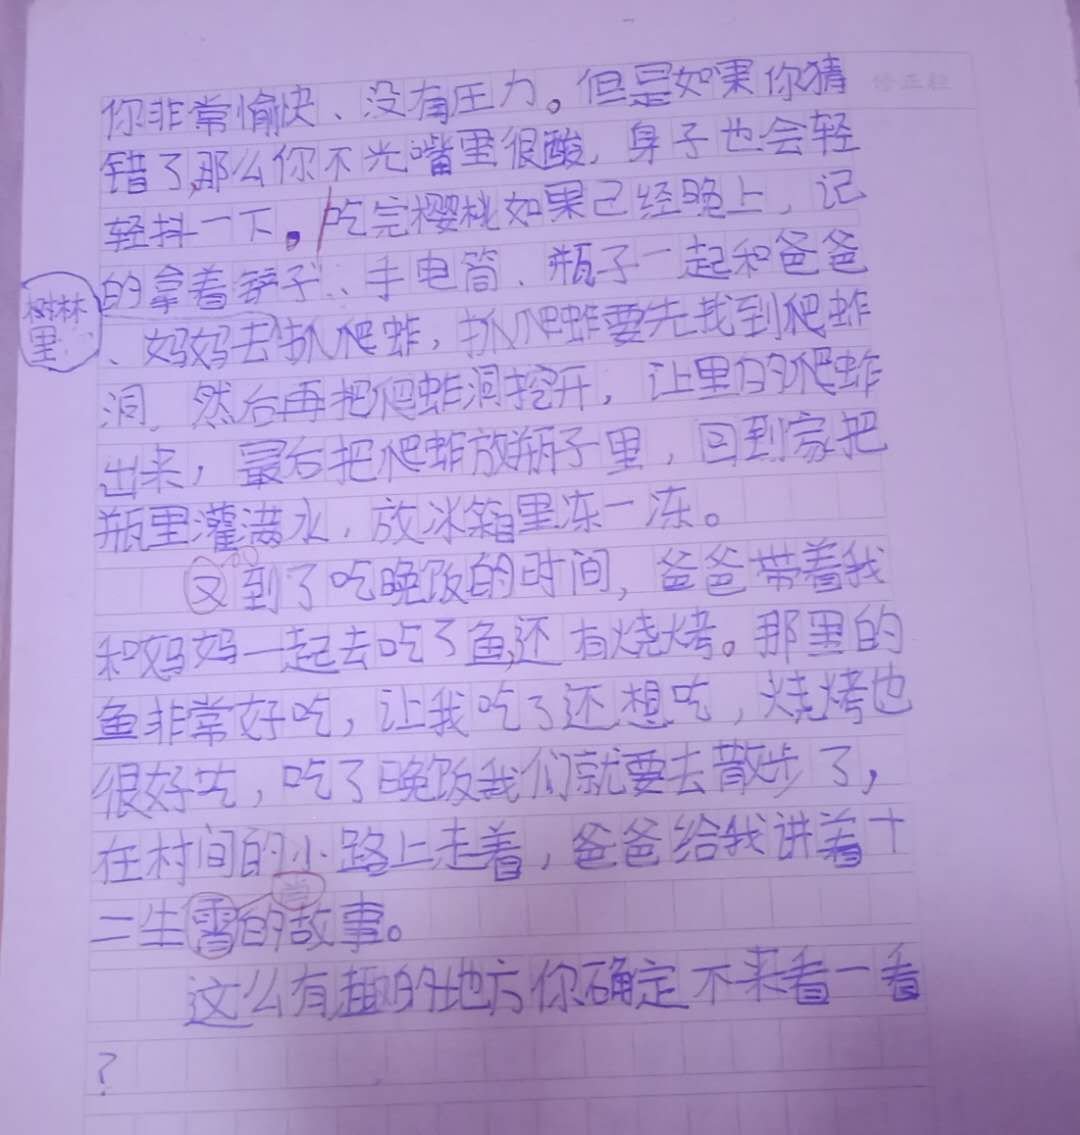 你非常愉快、没有压力。但是如果你猜
错了,那么你不光嘴里很酸,身子也会轻
轻抖一下。吃完樱桃如果已经晚上,记
的拿着铲子、手电筒、瓶子一起和爸爸
树林
里
、妈妈去抓爬蚱,抓爬蚱要先找到爬蚱
洞,然后再把爬蚱洞挖开,让里的爬蚱
出来,最后把爬蚱放瓶子里,回到家把
瓶里灌满水,放冰箱里冻一冻。
又到了吃晚饭的时间,爸爸带着我
和妈妈一起去吃了鱼,还有烧烤。那里的
鱼非常好吃,让我吃了还想吃,烧烤也
很好吃,吃了晚饭我们就要去散步了,
在村间的小路上走着,爸爸给我讲着十
二生的故事。
这么有趣的地方你确定不来看一看
?